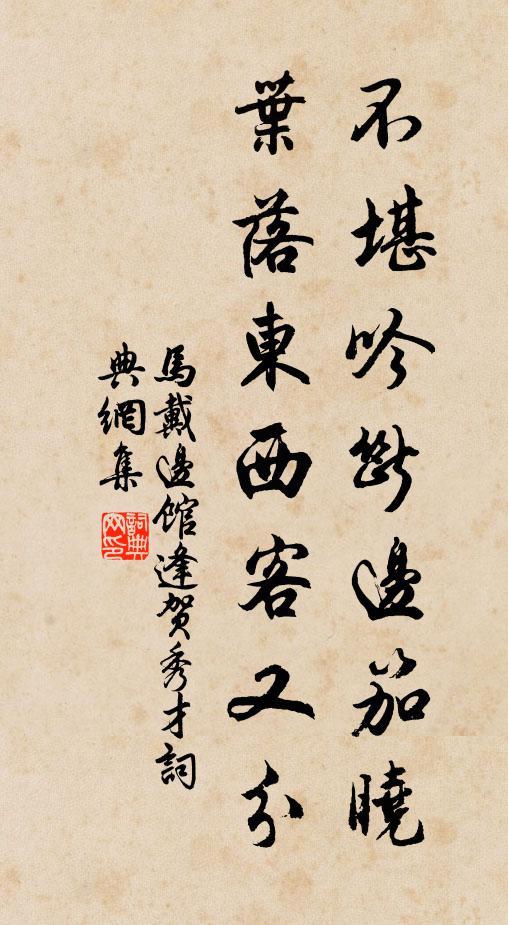 不堪吟斷邊笳曉
葉落東西客又分
馬戴邊館逢賀秀才詞
典網集
詞典網印